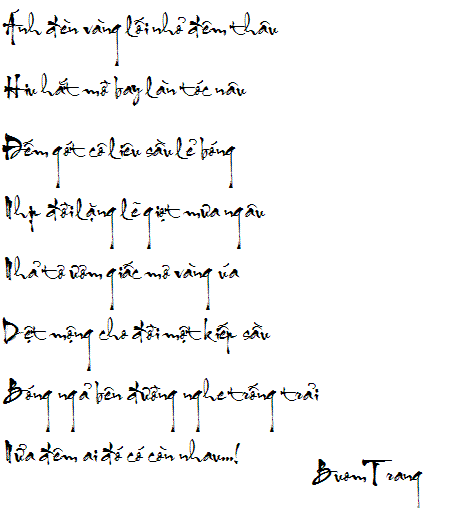 Ánh đèn vàng lối nhỏ đêm thâu
Hiu hắt mở bay làn tóc nâu
Đếm gót cô liêu sầu lẻ bóng
Nhịp đời lặng lẽ giọt mưa ngâu
Nhả tơ ươm giấc mơ vàng úa
Dệt mộng cho đời một kiếp sầu
Bóng ngả bên đường nghe trống trải
Nửa đêm ai đó có còn nhau...!
BuomTrang